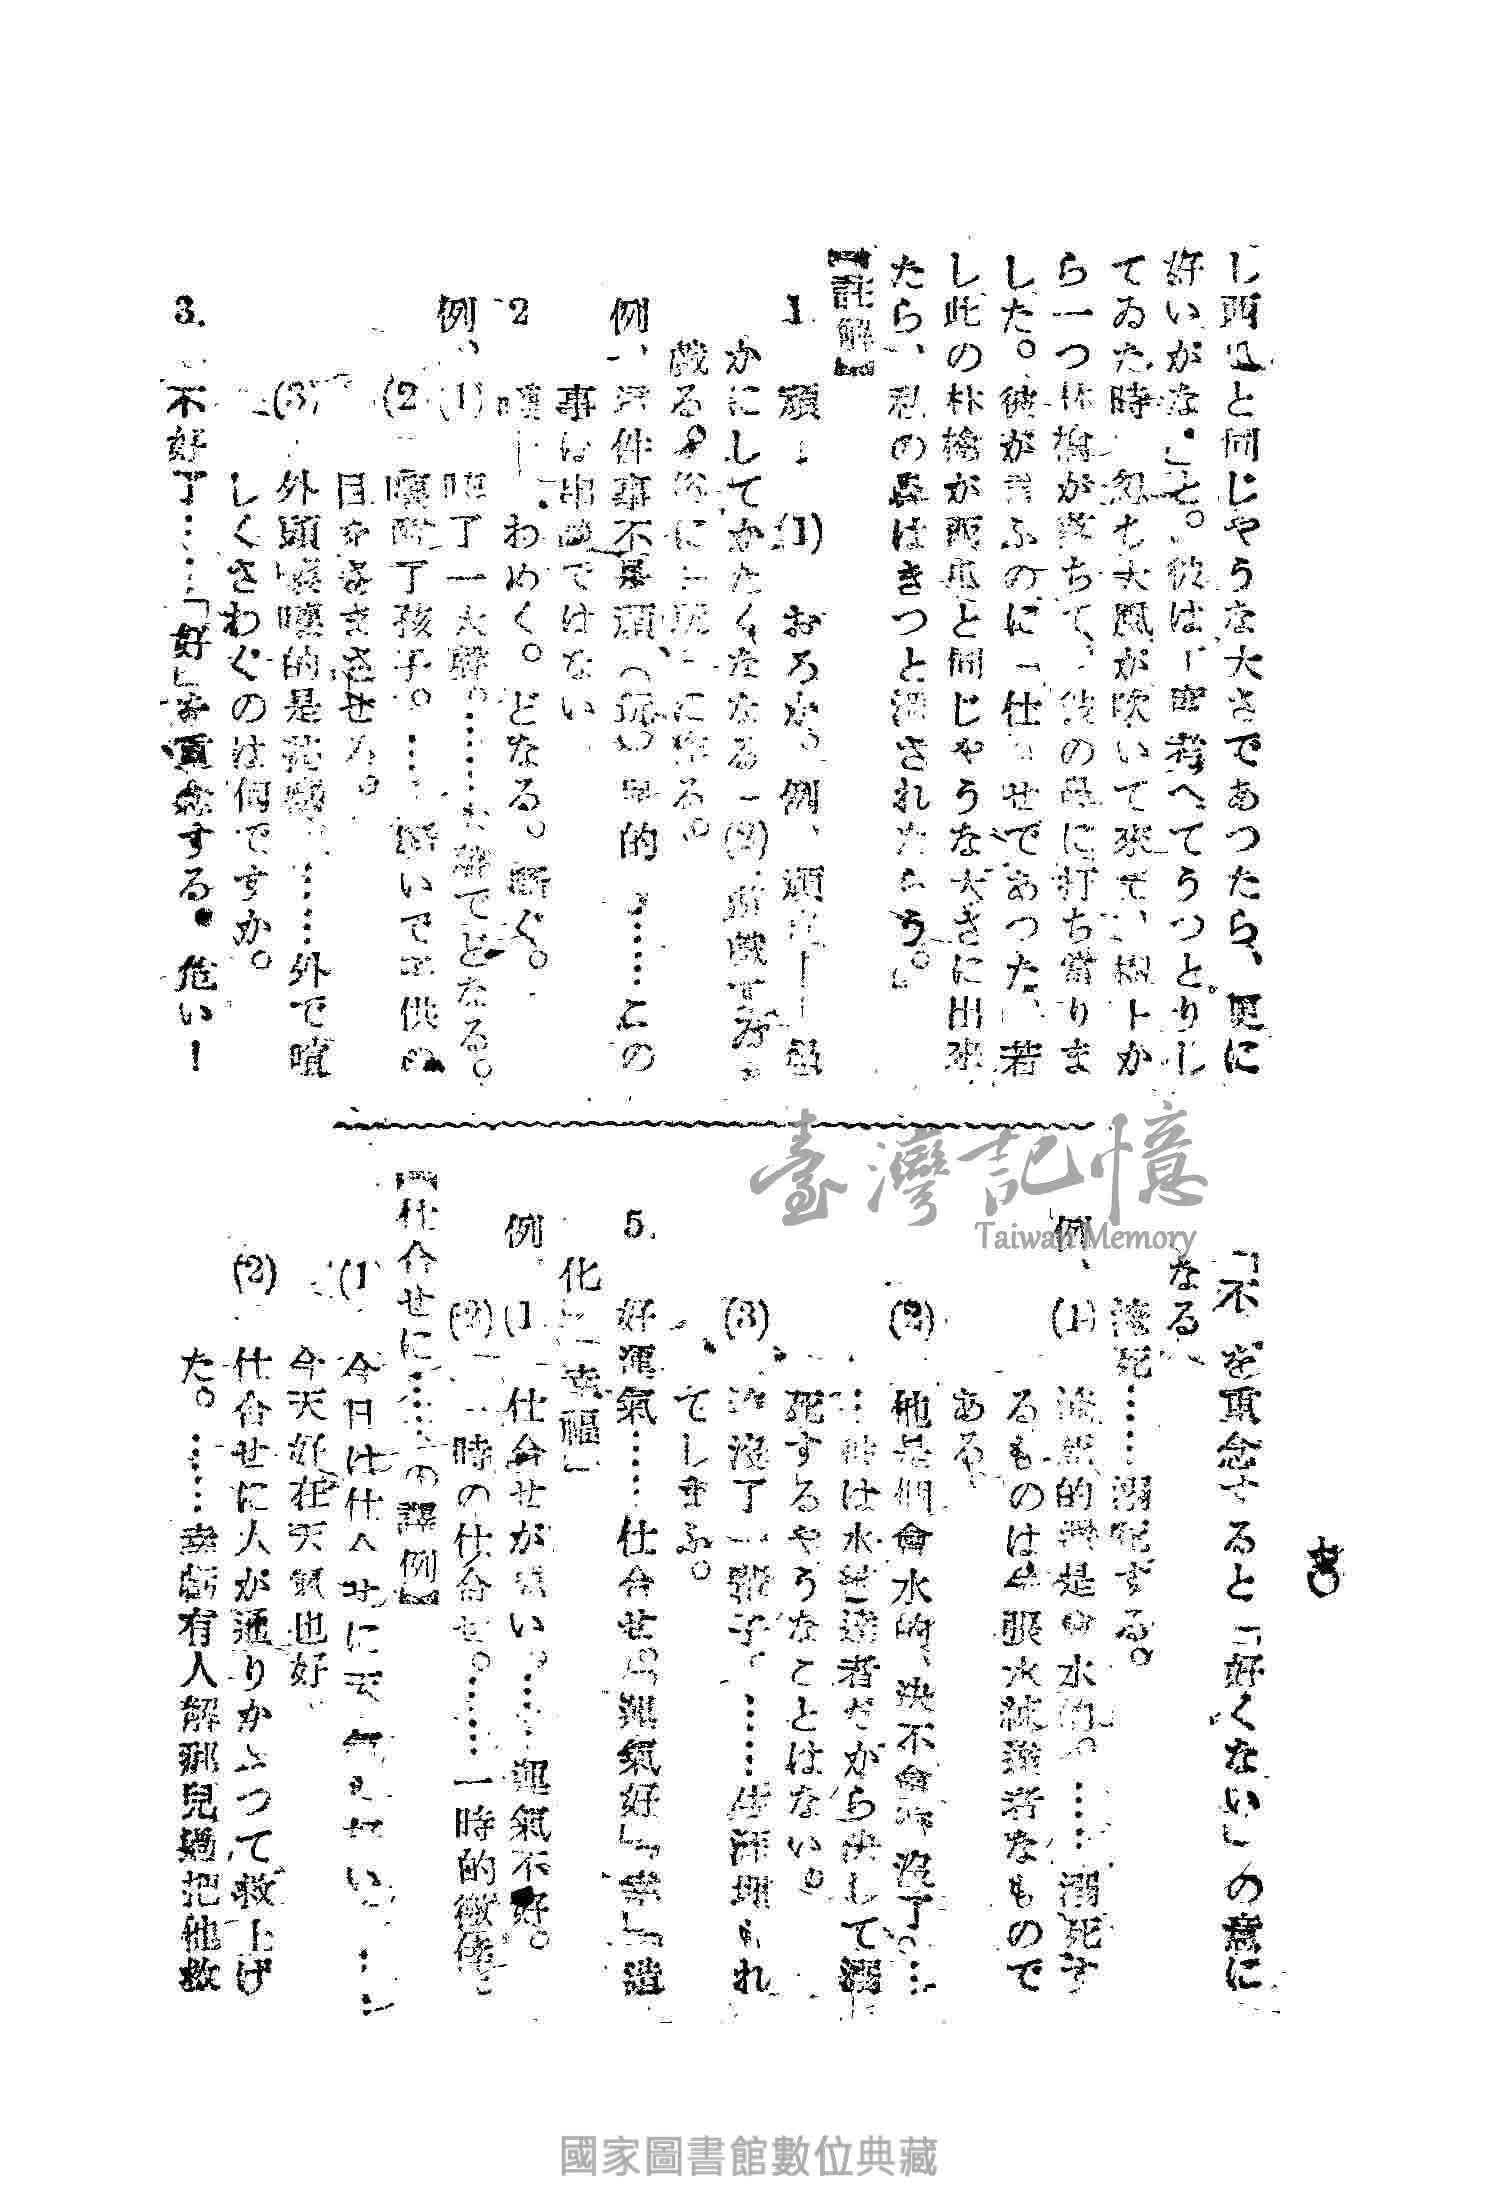 し西瓜と同じやうな大さであつたら、更に
好いがな」と。彼は一寸考へてうつとりし
てゐた時、忽ち大風が吹いて來て、樹上か
ら一つ林檎が落ちて、彼の鼻に打ち當りま
した。彼が言ふのに「仕合せであつた、若
し此の林檎が西瓜と同じやうな大さに出來
たら、私の鼻はきつと潰されたらう。」
【註解】
1 頑— (1) おろか。例、頑
かにしてかたくななる (2)
戲る。俗に「玩」に作る。
例、這件事不是頑(玩)的……この
事は串戲ではない
2 嚷— わめく。どなる。騷ぐ。
例、(1) 嚷了一大聲。……大聲でどなる。
(2) 嚷醒了孩子。……騷いで子供の
目をさまさせる。
(3) 外頭嚷嚷的是……外で喧
しくさわぐのは何ですか。
3. 不好了……「好」を重念する。危い!
「不」を重念すると「好くない」の意に
なる
淹死……溺死する。
例、(1) 淹死的都是會水的。……溺死す
るものは全部水泳達者なもので
ある
(2) 他是們會水的、決不會淹沒了。…
…彼は水泳達者だから決して溺
死するやうなことはない。
(3) 沒了一輩子。……生涯埋もれ
てしまふ。
5. 好運氣……仕合せ。「運氣好」「幸」「造
化」「幸福」
例、(1) 仕合せが惡い。……運氣不好。
(2) 一時の仕合せ。……一時的徼倖
【仕合せに……の譯例】
(1) 今日は仕合せに天氣もせい……
今天好在天氣也好
(2) 仕合せに人が通りかゝつて救上げ
た。……幸虧有人解那兒過把他救
七〇
臺灣記憶
Taiwan Memory
國家圖書館數位典藏